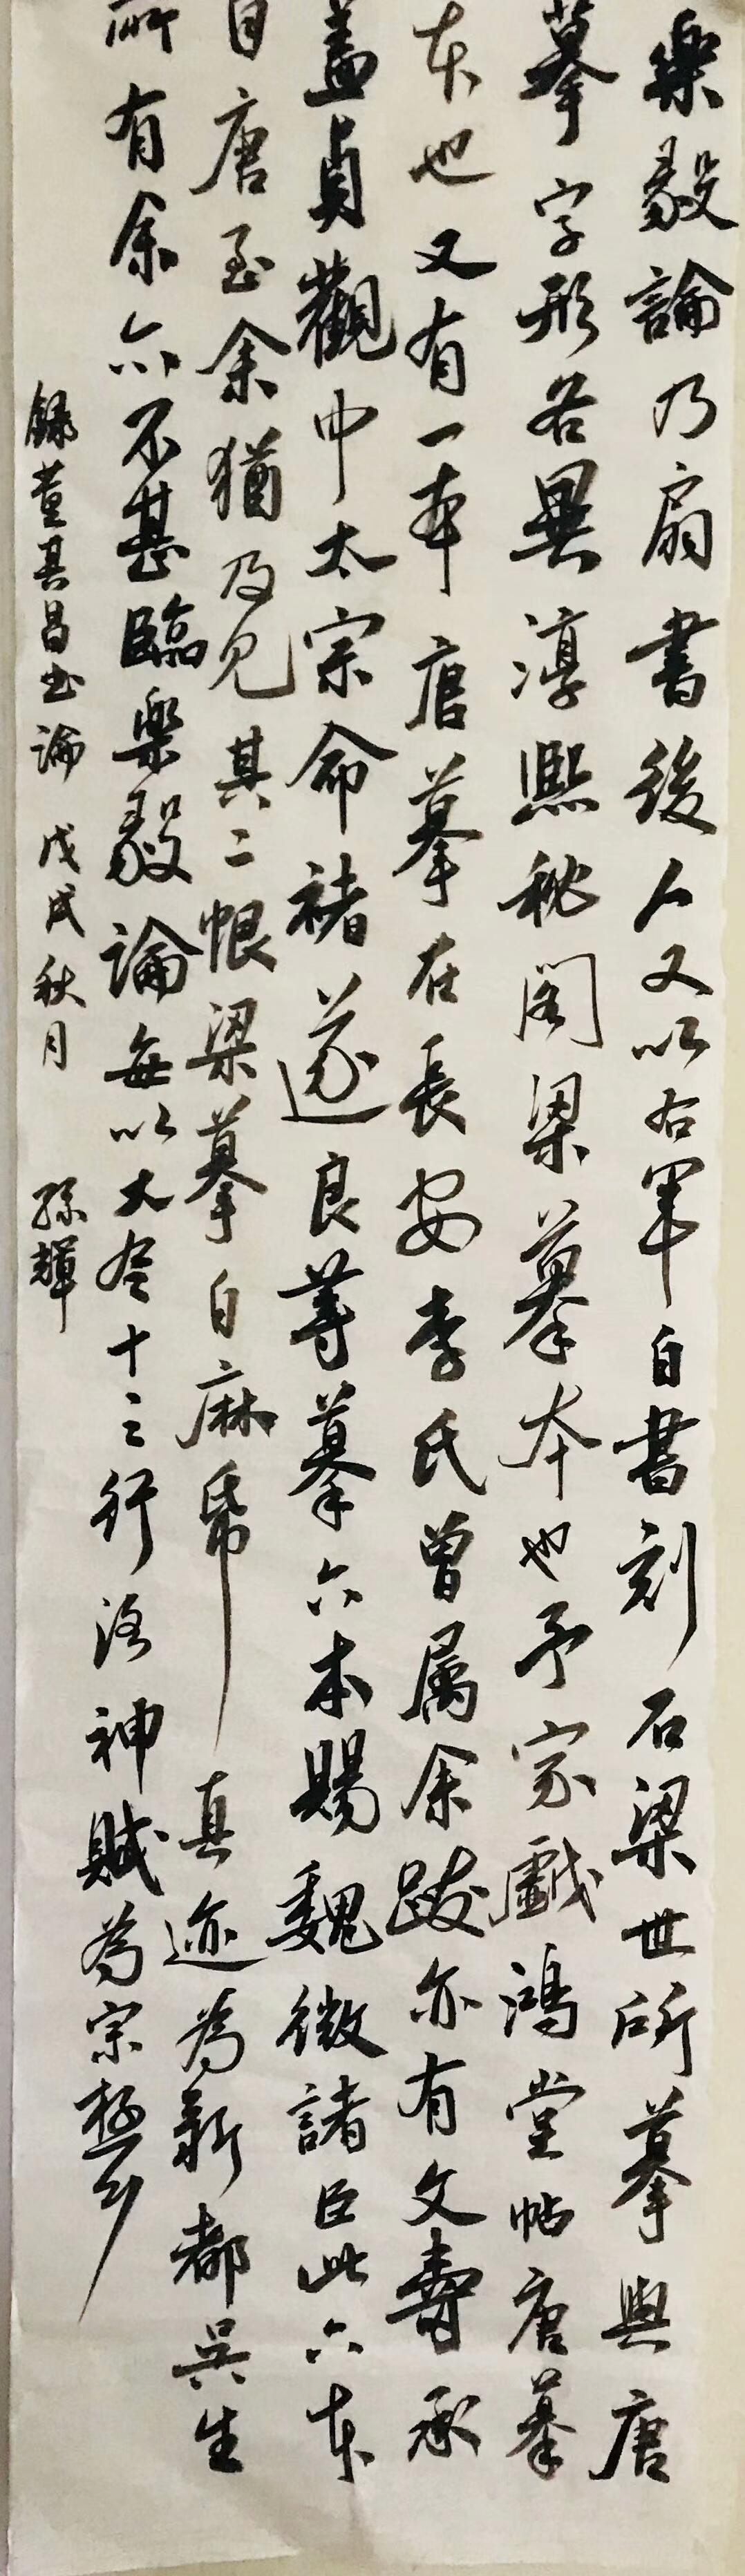 樂毅論乃扇書後人又以右軍自書刻石梁世所摹與唐
摹字形各異淳熙秘閣梁摹本也予家戲鴻堂帖唐摹
本也又有一本唐摹在長安李氏曾属余跋亦有文壽承
蓋貞觀中太宗命褚遂良等摹六本賜魏徵諸臣此六本
自唐至余猶及見其二恨梁摹白麻帋真迹為新都吳生
所有余亦不甚臨樂毅論每以大令十三行洛神賦為宗極耳
録董其昌書論 戊戌秋月 孫輝